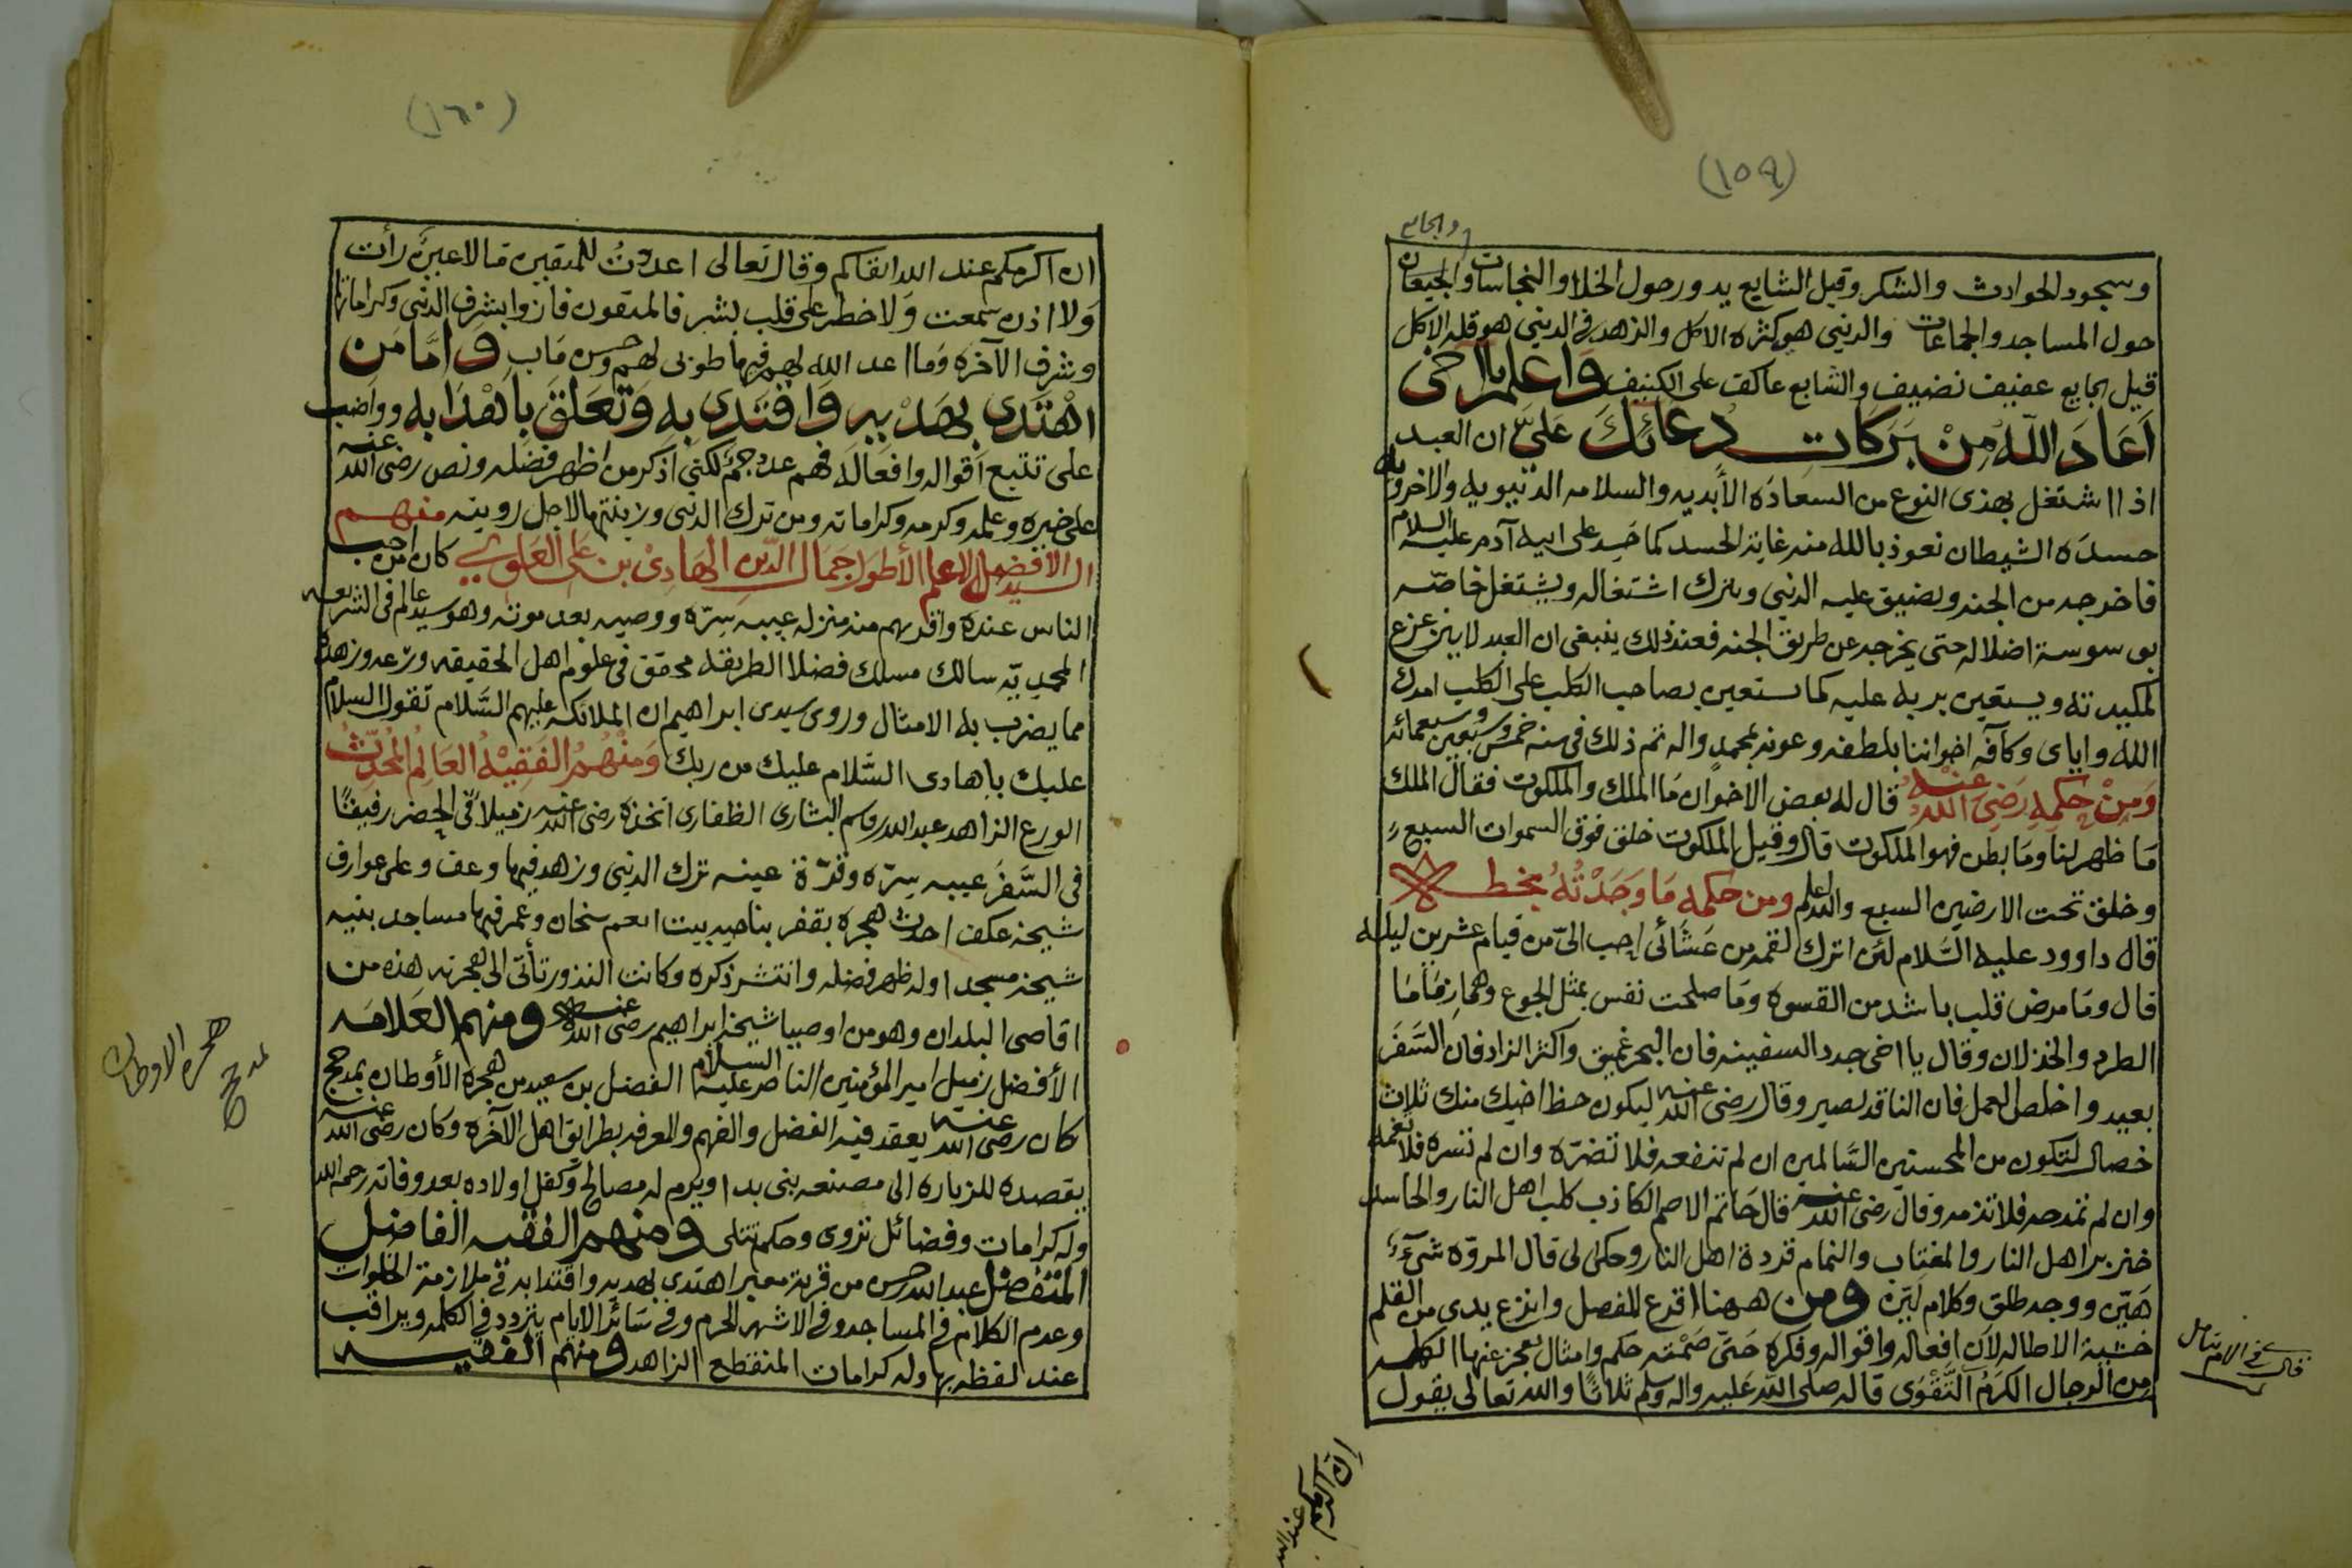 (١٥٩)
والجامع
وسجود الحوادث والشكر وقيل الشابع يدور حول الخلا والنجاسات والجيعان
حول المساجد والجماعات والدنيى هو كثرة الاكل والزهد في الدنيى هو قله الاكل
قيل الجايع عفيف نضيف والشابع عاكف على الكنيف واعلم يا اخي
اَعَادَ اللّه مِنْ بَرَكَات دُعَائكَ عَليَّ ان العبد
اذا اشتغل بهذى النوع من السعادَه الأبديه والسلامه الدنيويه والاخرويه
حسدَه الشيطان نعوذ بالله منه غاية الحسد كما حَسِد على ابيه آدم عليه السلام
فاخرجه من الجنه ويضيق عليه الدنيى ويترك اشتغاله ويشتغل خاصّه
بوسوسة اضلاله حتى يخرجه عن طريق الجنه فعند ذلك ينبغي ان العبد لا ينزعزع
لمكيدته ويستعين بربه عليه كما يستعين بصاحب الكلب على الكلب امدك
الله واياى وكآفه اخواننا بلطفه وعونه بمحمدٍ واله تم ذلك في سنه خمس وسبعين وسبعمائه
وَمِنْ حِكَمِهِ رَضِيَ اللّهُ عَنْهُ قال له بعض الاخوان مَا الملك والملكوت فقال الملك
مَا ظهر لنا ومَا بطن فهو الملكوت قال وقيل الملكوت خلق فوق السموات السبع
وخلق تحت الارضين السبع والله اعلم ومن حكمه مَا وَجَدْتُهُ بخطـه
قال داوود عليه السَّلام لئن اترك لقمه من عَشَائى احب الىّ من قيام عشرين ليله
قال ومَا مرض قلب باشد من القسوه ومَا صلحت نفس بمثل الجوع وهما زِمَامَا
الطرد والخذلان وقال يا اخى جدد السفينه فان البحر عَميق واكثر الزاد فان السَّفَر
بعيد واخلص العمل فان الناقد بصير وقال رضى الله عنه ليكون حظ اخيك منك ثلاث
خصال لتكون من المحسنين السَّالمين ان لم تنفعه فلا تضرّه وان لم تسره فلا تغمه
وان لم تمدحه فلا تذمه وقال رضى الله عنه قال حَاتم الاصم الكاذب كلب اهل النار والحاسد
خنزير اهل النار والمغتاب والنمام قردة اهل النار وحكى لى قال المروّه شيءٌ
هَيّن ووجه طلق وكلام لَيّن ومن ههنا اقدع للفصل وانزع يدي من القلم
خشية الاطاله لان افعاله واقواله وفكره حَتىّ صَمْته حكم وامثال يعجز عنها الكلمه
مِن الرجال الكَرَمُ التَّقْوَى قاله صلى الله عَليه واله وسلم ثلاثًا والله تعالى يقول
ان اكرمكم عند الله
(١٦٠)
ان اكرمكم عند الله اتقاكم وقال تعالى اعددتُ للمتقين مَا لا عينٌ رأت
وَلا اذن سمعت وَلا خطر على قلب بشر فالمتقون فازوا بشرف الدنيى وكراماتها
وشرف الآخره وَما اعد الله لهم فيها طوبى لهم وحسن مَاب وَامَّا مَن
اهْتَدَى بِهَدْيِهِ وَاقتدَى بِهِ وَتَعَلقَ باَهْدَابِه وواضب
على تتبع اَقواله وافعاله فهم عدد جَمٌ لكني اذكر من اظهر فضله ونص رضى الله عنه
على خيره وعلمه وكرمه وكراماته ومن ترك الدنيى وزينتها لاجل روينه منهـم
السيد الافضل الاعلم الأطول جَمَال الدّين الهَادِىْ بن عَلى العَلوي كان من احب
الناس عنده واقدبهم منه منزله عيبه سِرّه ووصيه بعد موته وهو سيد عالم في الشريعه
المحمديّه سالك مسلك فضلا الطريقه محقق في علوم اهل الحقيقه ورَعه وزهده
مما يضرب به الامثال وروى سيدى ابراهيم ان الملائكه عليهم السَّلام تقول السلام
عليك ياهادى السَّلام عليك من ربك وَمنْهُمُ الفَقِيْهُ العَالِمُ المُحَدّثُ
الورع الزاهد عبدالله بن قاسم البشارى الظفارى اتخذه رضى الله عنه زميلاً في الحضر رفيقًا
فى السَّفَر عيبه سِرّه وقرّة عينه ترك الدنيى وزهد فيها وعف وعلى عوارف
شيخه عكف احدث هجره بقفر بناحيه بيت انعم سنحان وعمر فيها مساجد بنيه
شيخه مسجدا وله ظهر فضله وانتشر ذكره وكانت النذور تأتى الى هجرته هذه من
اقاصى البلدان وهو من اوصيا شيخه ابراهيم رضى الله عنه ومنهم العَلامَه
الأفضل زميل امير المؤمنين الناصر عليه السلام الفضل بن سعيد من هجره الأوطان بمدحج
كان رضى الله عنه يعقد فيه الفضل والفهم والمعرفه بطرائق اهل الآخره وكان رضى الله عنه
يقصده للزياره الى مصنعه بنى بدا ويرم له مصالح وكفل اولاده بعد وفاته رحمه الله
وله كرامات وفضائل تروى وحكم تتلى ومنهم الفقيه الفاضل
المتفضل عبدالله حسن من قرية معبر اهتدى بهديه واقتدا به في ملازمة الخلوات
وعدم الكلام في المساجد وفي الاشهر الحرم وفي سَائر الايام يتردد في الكلمه ويراقب
عند لفظه بها وله كرامات المنقطع الزاهد ومنهم الفقيـه
هجره الاوطان
مدحج